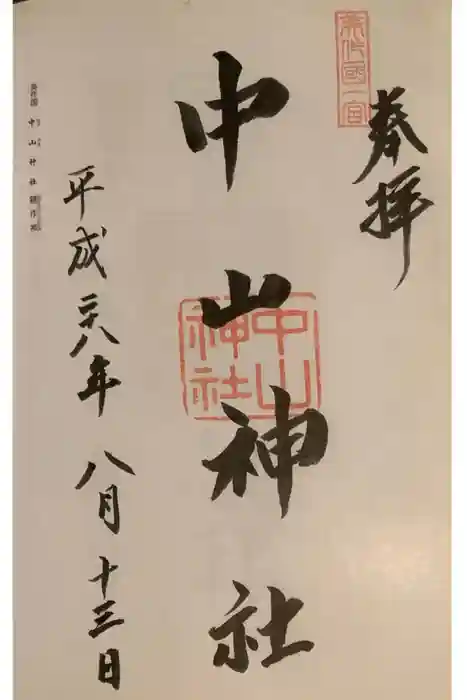 美作國一宮
奉拝
中山神社
中山神社
平成二十八年 八月十三日
美作國 中山神社